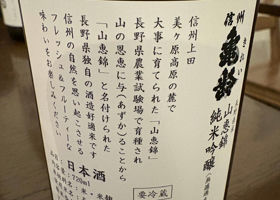 信州
亀齢
きれい
山恵錦
純米吟醸
信州上田
美ヶ原高原の麓で
大事に育てられた「山恵錦」
長野県農業試験場で育種され
山の恩恵に与(あずか)ることから
「山恵錦」と名付けられた
長野県独自の酒造好適米です
信州の自然を思い起こさせる
フレッシュ&フルーティーな
味わいをお楽しみください
日本酒
720ml
要冷蔵